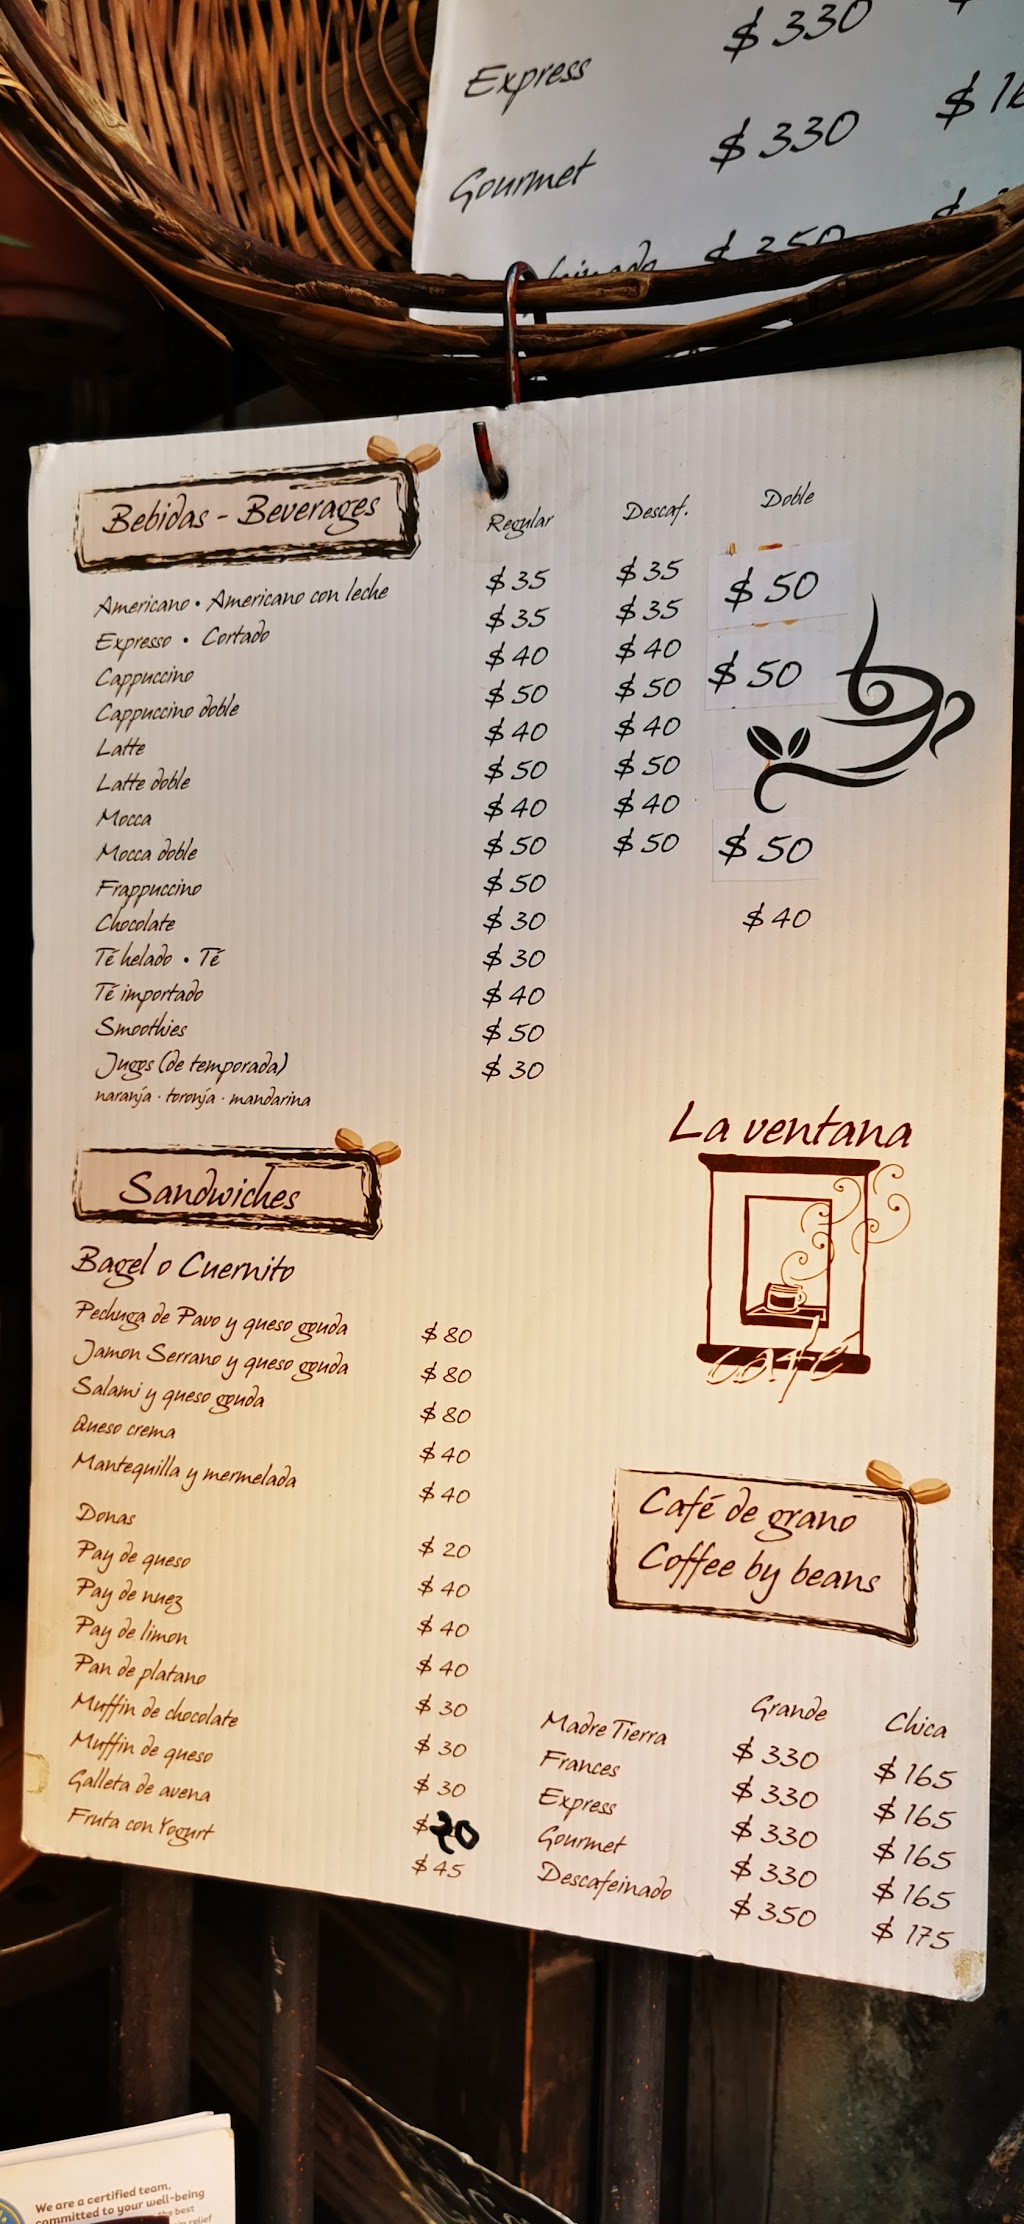 $ 330
Express
$ 330
Gourmet
$ 350
Bebidas - Beverages Regular Descaf. Doble
Americano • Americano con leche $ 35 $ 35 $ 50
Expresso • Cortado $ 35 $ 35
Cappuccino $ 40 $ 40 $ 50
Cappuccino doble $ 50 $ 50
Latte $ 40 $ 40
Latte doble $ 50 $ 50
Mocca $ 40 $ 40
Mocca doble $ 50 $ 50 $ 50
Frappuccino $ 50
Chocolate $ 30 $ 40
Té helado • Té $ 30
Té importado $ 40
Smoothies $ 50
Jugos (de temporada) $ 30
naranja · toronja · mandarina
Sandwiches
Bagel o Cuernito
Pechuga de Pavo y queso gouda $ 80
Jamon Serrano y queso gouda $ 80
Salami y queso gouda $ 80
Queso crema $ 40
Mantequilla y mermelada $ 40
Donas $ 20
Pay de queso $ 40
Pay de nuez $ 40
Pay de limon $ 40
Pan de platano $ 30
Muffin de chocolate $ 30
Muffin de queso $ 30
Galleta de avena $
Fruta con Yogurt $ 45
La ventana
café
Café de grano
Coffee by beans
Grande Chica
Madre Tierra $ 330 $ 165
Frances $ 330 $ 165
Express $ 330 $ 165
Gourmet $ 330 $ 165
Descafeinado $ 350 $ 175
We are a certified team,
committed to your well-being
the best
relief